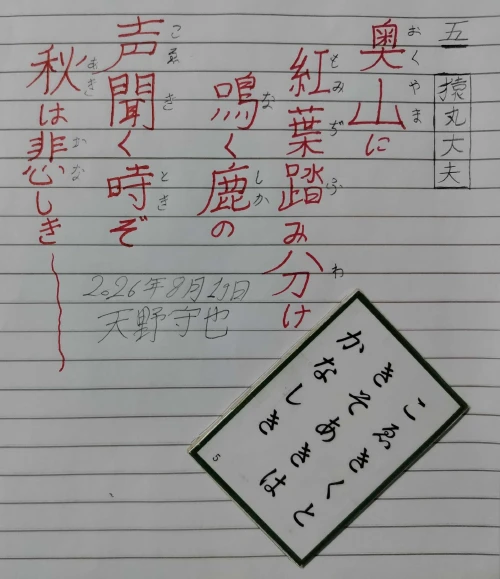 五
猿丸大夫
おくやま
奥山に
もみぢ ふ わ
紅葉踏み分け
な しか
鳴く鹿の
こゑ き とき
声聞く時ぞ
あき かな
秋は悲しき
2026年8月
天野守也
こゑきくと
きそあきは
かなしき
5